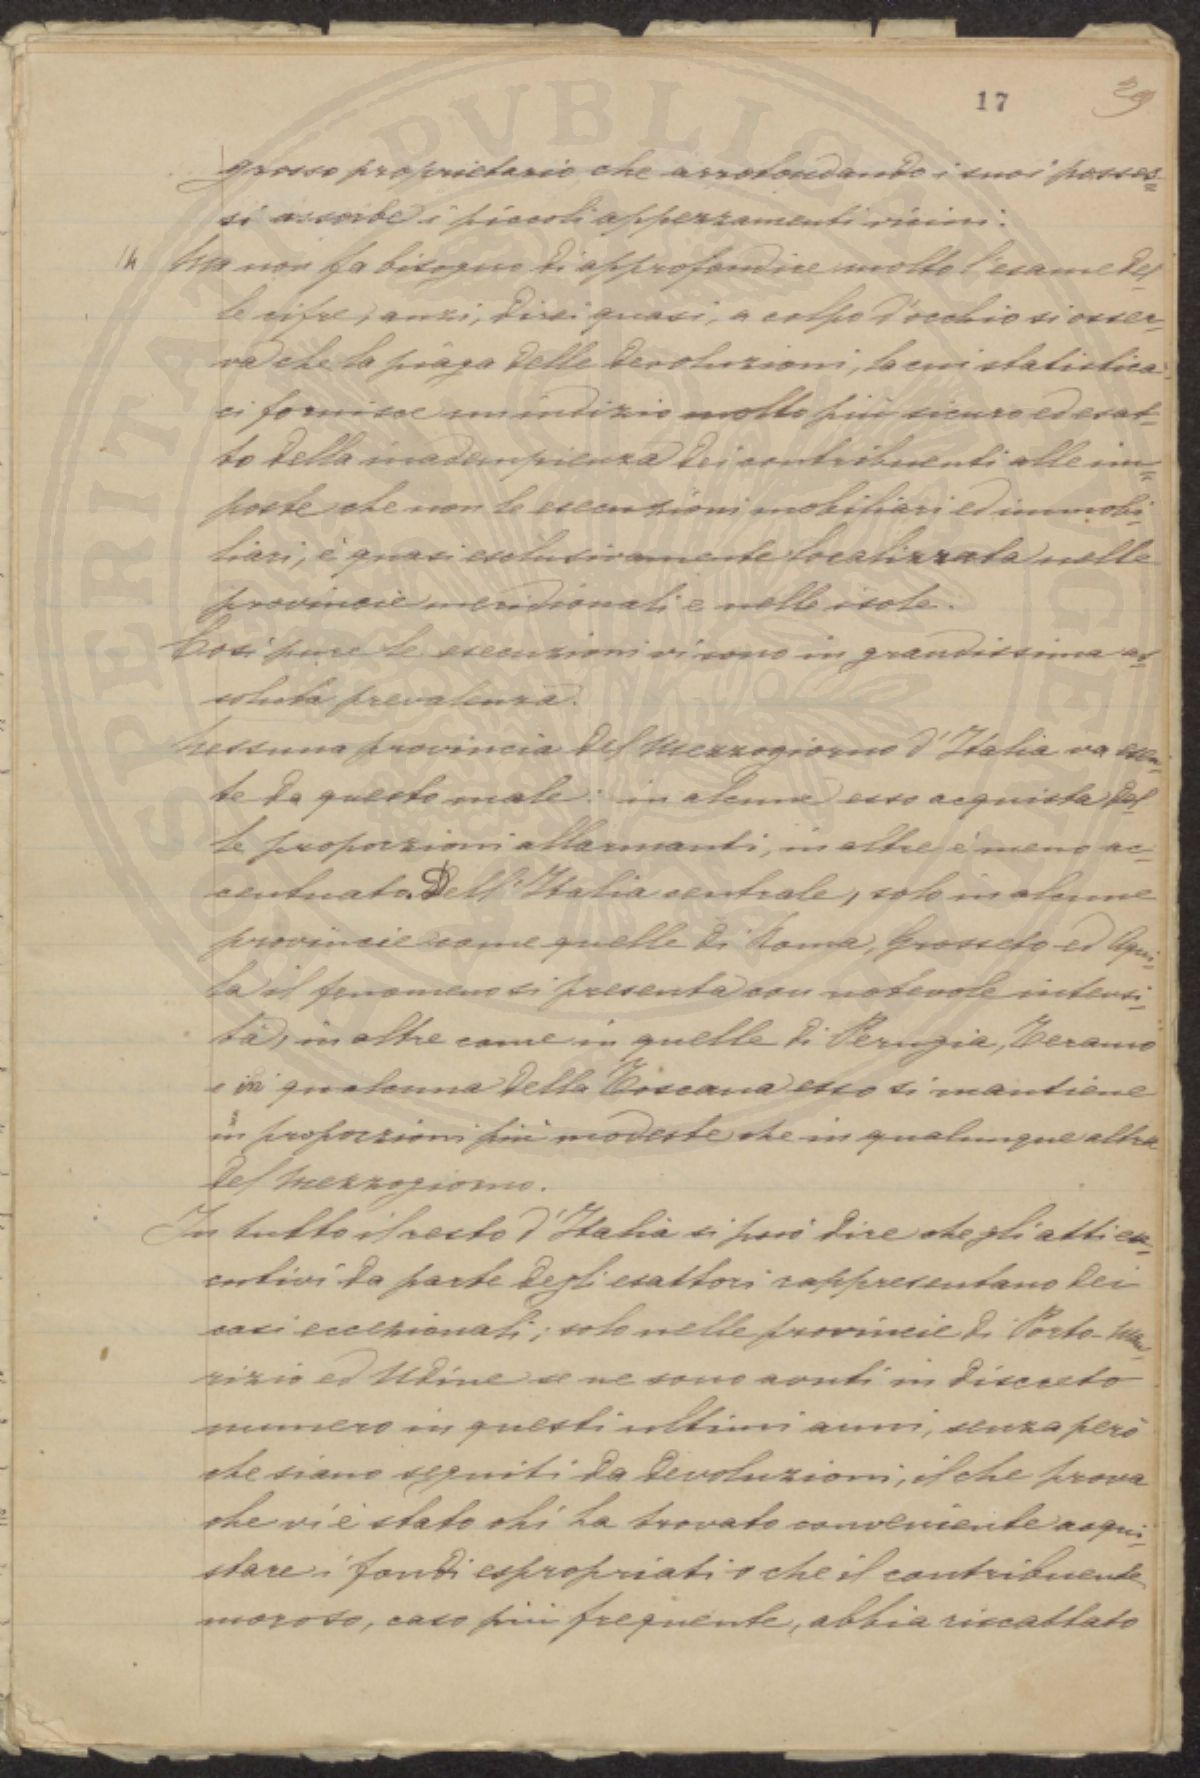 17 29
grosso proprietario che arrotondando i suoi posses=
si assorbe i piccoli appezzamenti vicini.
Ma non fa bisogno di approfondire molto l'esame del=
le cifre, anzi, direi quasi, a colpo d'occhio si osser=
va che la piaga delle devoluzioni, la cui statistica
ci fornisce un indizio molto più sicuro ed esat=
to della inadempienza dei contribuenti alle im=
poste che non le esecuzioni mobiliari ed immobi=
liari, è quasi esclusivamente localizzata nelle
provincie meridionali e nelle isole.
Così pure le esecuzioni vi sono in grandissima as=
soluta prevalenza.
Nessuna provincia del Mezzogiorno d'Italia va esen=
te da questo male: in alcune esso acquista del=
le proporzioni allarmanti, in altre è meno ac=
centuato. Dell'Italia centrale, solo in alcune
provincie come quelle di Roma, Grosseto ed Aqui=
la il fenomeno si presenta con notevole intensi=
tà, in altre come in quelle di Perugia, Teramo
e in qualcuna della Toscana esso si mantiene
in proporzioni più modeste che in qualunque altra
del Mezzogiorno.
In tutto il resto d'Italia si può dire che gli atti ese=
cutivi da parte degli esattori rappresentano dei
casi eccezionali; solo nelle provincie di Porto-Mau=
rizio ed Udine se ne sono avuti in discreto
numero in questi ultimi anni, senza però
che siano seguiti da devoluzioni, il che prova
che vi è stato chi ha trovato conveniente acqui=
stare i fondi espropriati o che il contribuente
moroso, caso più frequente, abbia riscattato